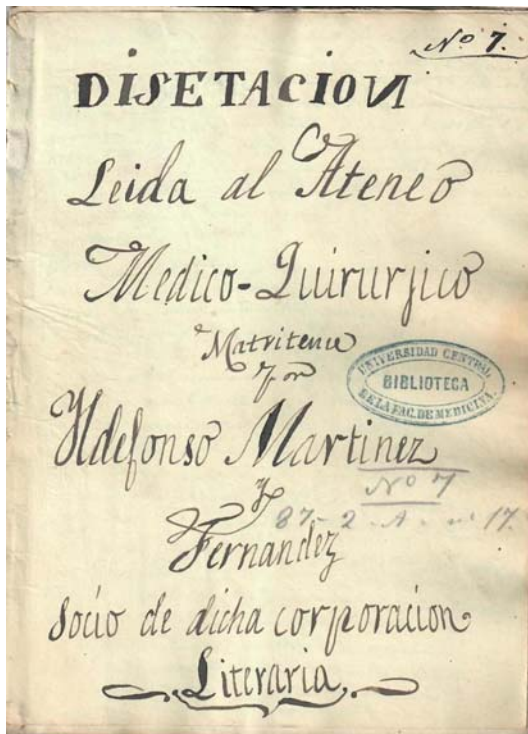 Nº 7.
DISETACION
Leida al Ateneo
Medico-Quirurjico
Matritence
por
UNIVERSIDAD CENTRAL
BIBLIOTECA
DE LA FAC. DE MEDICINA.
Ildefonso Martinez
Nº 7
y
87-2-A-nº 17.
Fernandez
Socio de dicha corporacion
Literaria,